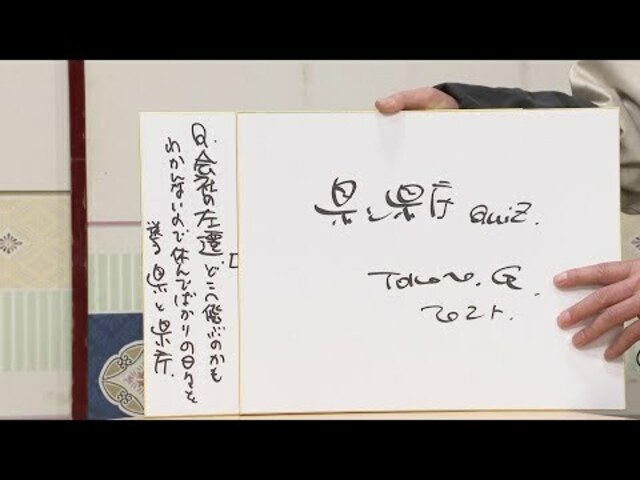 Q.会社の左遷どこへ飛ぶのかも
わかんないので休んでばかりの日々を
送る県と県庁.
県と県庁 QuiZ.
2021.